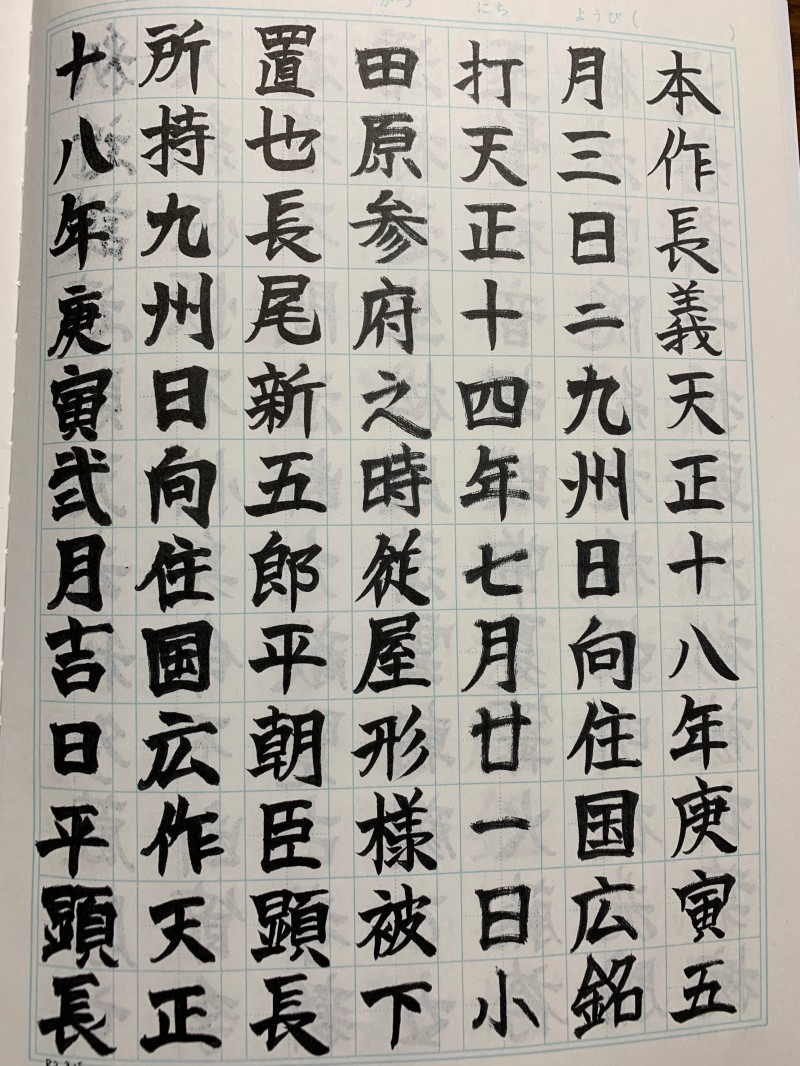 がつ にち ようび( )
本作長義天正十八年庚寅五
月三日ニ九州日向住国広銘
打天正十四年七月廿一日小
田原参府之時従屋形様被下
置也長尾新五郎平朝臣顕長
所持九州日向住国広作天正
十八年庚寅弐月吉日平顕長